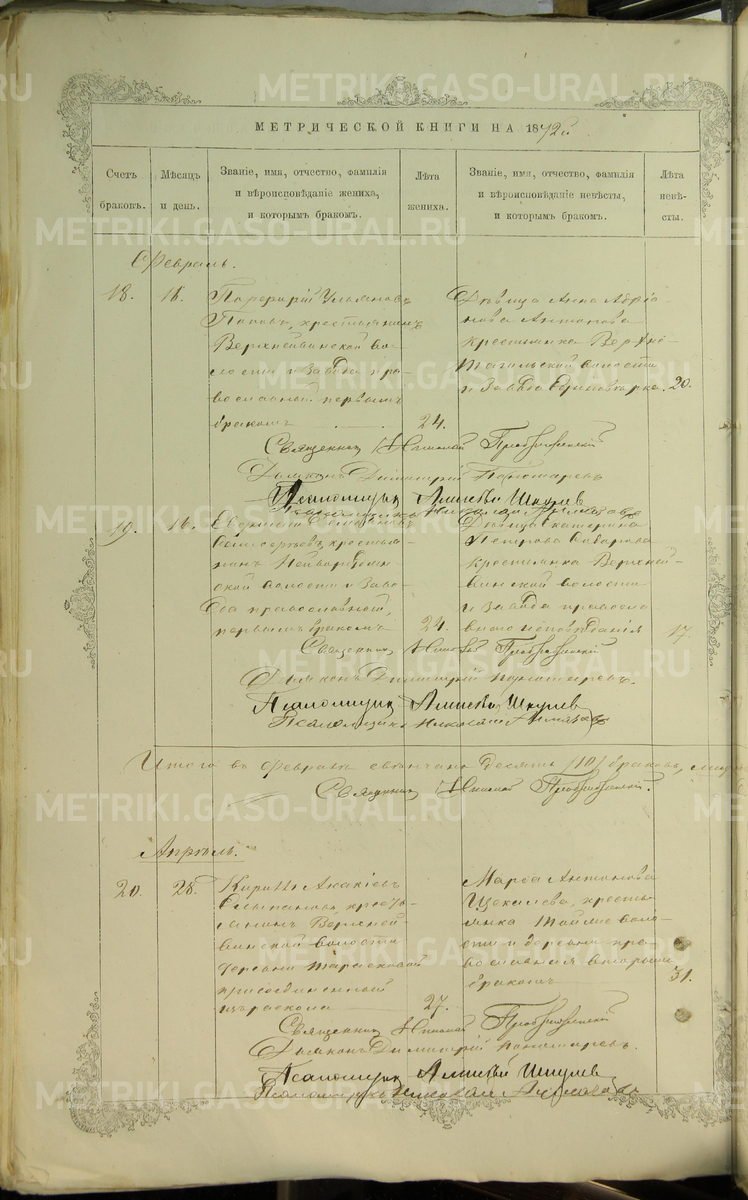 МЕТРИЧЕСКОЙ КНИГИ НА 1872й
Счетъ браковъ.
Мѣсяцъ и день.
Званіе, имя, отчество, фамилія
и вѣроисповѣданіе жениха,
и которымъ бракомъ.
Лѣта жениха.
Званіе, имя, отчество, фамилія
и вѣроисповѣданіе невѣсты,
и которымъ бракомъ.
Лѣта невѣ-
сты.
Февраль.
18. 16. Порфирій Ульяновъ
Поповъ, крестьянинъ
Верхнейвинской во-
лости и завода пра-
вославный первымъ
бракомъ 24.
Дѣвица Анна Адріа-
нова Антонова
крестьянка Верхно-
Тагильской волости
и Завода единовѣрка. 20.
Священникъ Николай Преображенскій
Дьяконъ Димитрій Пономаревъ
Псаломщикъ Алексѣй Шкулев
Псаломщикъ Николай
19. 16.
крестья-
нинъ Нейворудян-
ской волости и Заво-
да православный,
первымъ бракомъ 24.
Дѣвица Екатерина
Петрова
крестьянка Верхней-
винской волости
и Завода правосла
внаго исповѣданія 17.
Священникъ Николай Преображенскій
Дьяконъ Димитрій Пономаревъ.
Псаломщикъ Алексѣй Шкулев
Псаломщикъ Николай
Итого въ Февралѣ свѣнчано десять /10/ браковъ,
Священникъ Николай Преображенскій.
Апрѣль.
20. 28. Кириллъ Акакіевъ
кресть-
янинъ Верхней-
винской волости
деревни Тарасковой
присоединенный
изъ раскола 27.
Марѳа Антонова
Щекалева, кресть-
янка воло-
сти и деревни пра-
вославная вторымъ
бракомъ 31.
Священникъ Николай Преображенскій
Дьяконъ Димитрій Пономаревъ.
Псаломщикъ Алексѣй Шкулев
Псаломщикъ Николай
METRIKI.GASO-URAL.RU